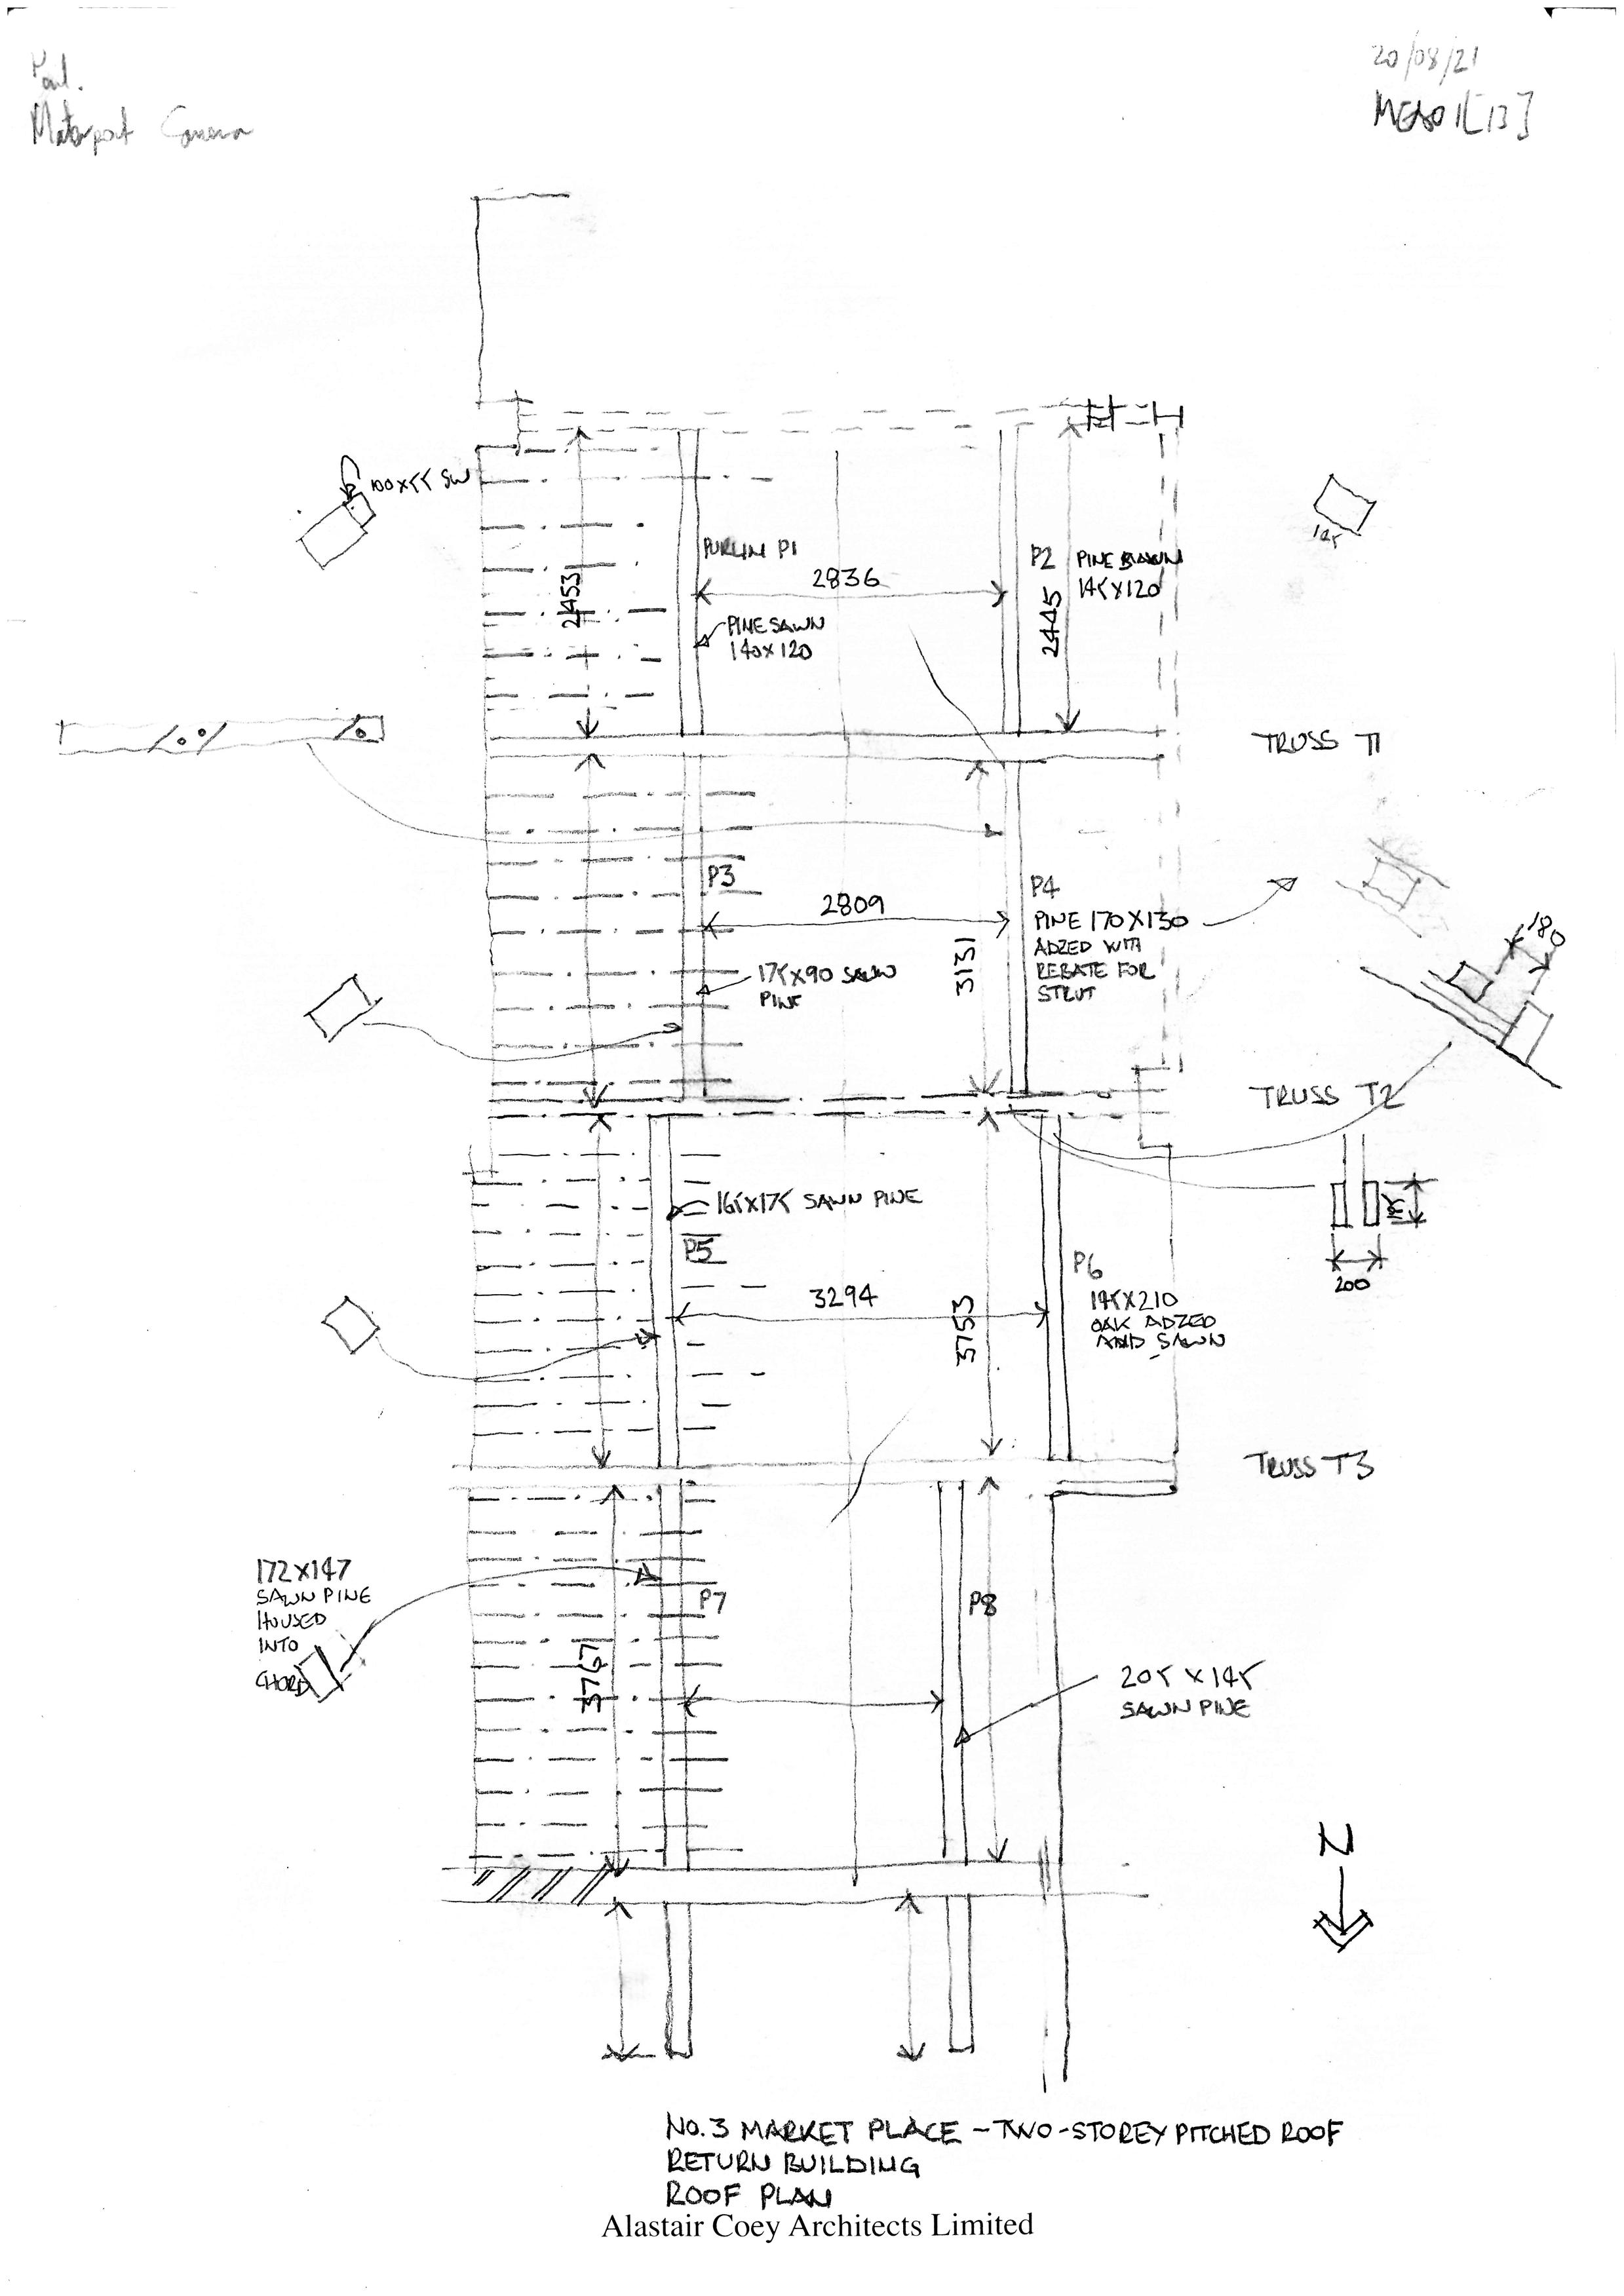 20/08/21
Paul.
Matterport Camera
100x55 SW
PURLIN P1
2836
P2
PINE SAWN
145X120
2453
2445
PINE SAWN
140X120
125
TRUSS T1
P3
2809
P4
PINE 170X130
ADZED WITH
REBATE FOR
STRUT
3131
175X90 SAWN
PINE
180
TRUSS T2
165X175 SAWN PINE
P5
3294
P6
145X210
OAK ADZED
AND SAWN
3753
200
TRUSS T3
172X147
SAWN PINE
HOUSED
INTO
CHORD
P7
P8
3767
205 X 145
SAWN PINE
N
NO.3 MARKET PLACE - TWO-STOREY PITCHED ROOF
RETURN BUILDING
ROOF PLAN
Alastair Coey Architects Limited